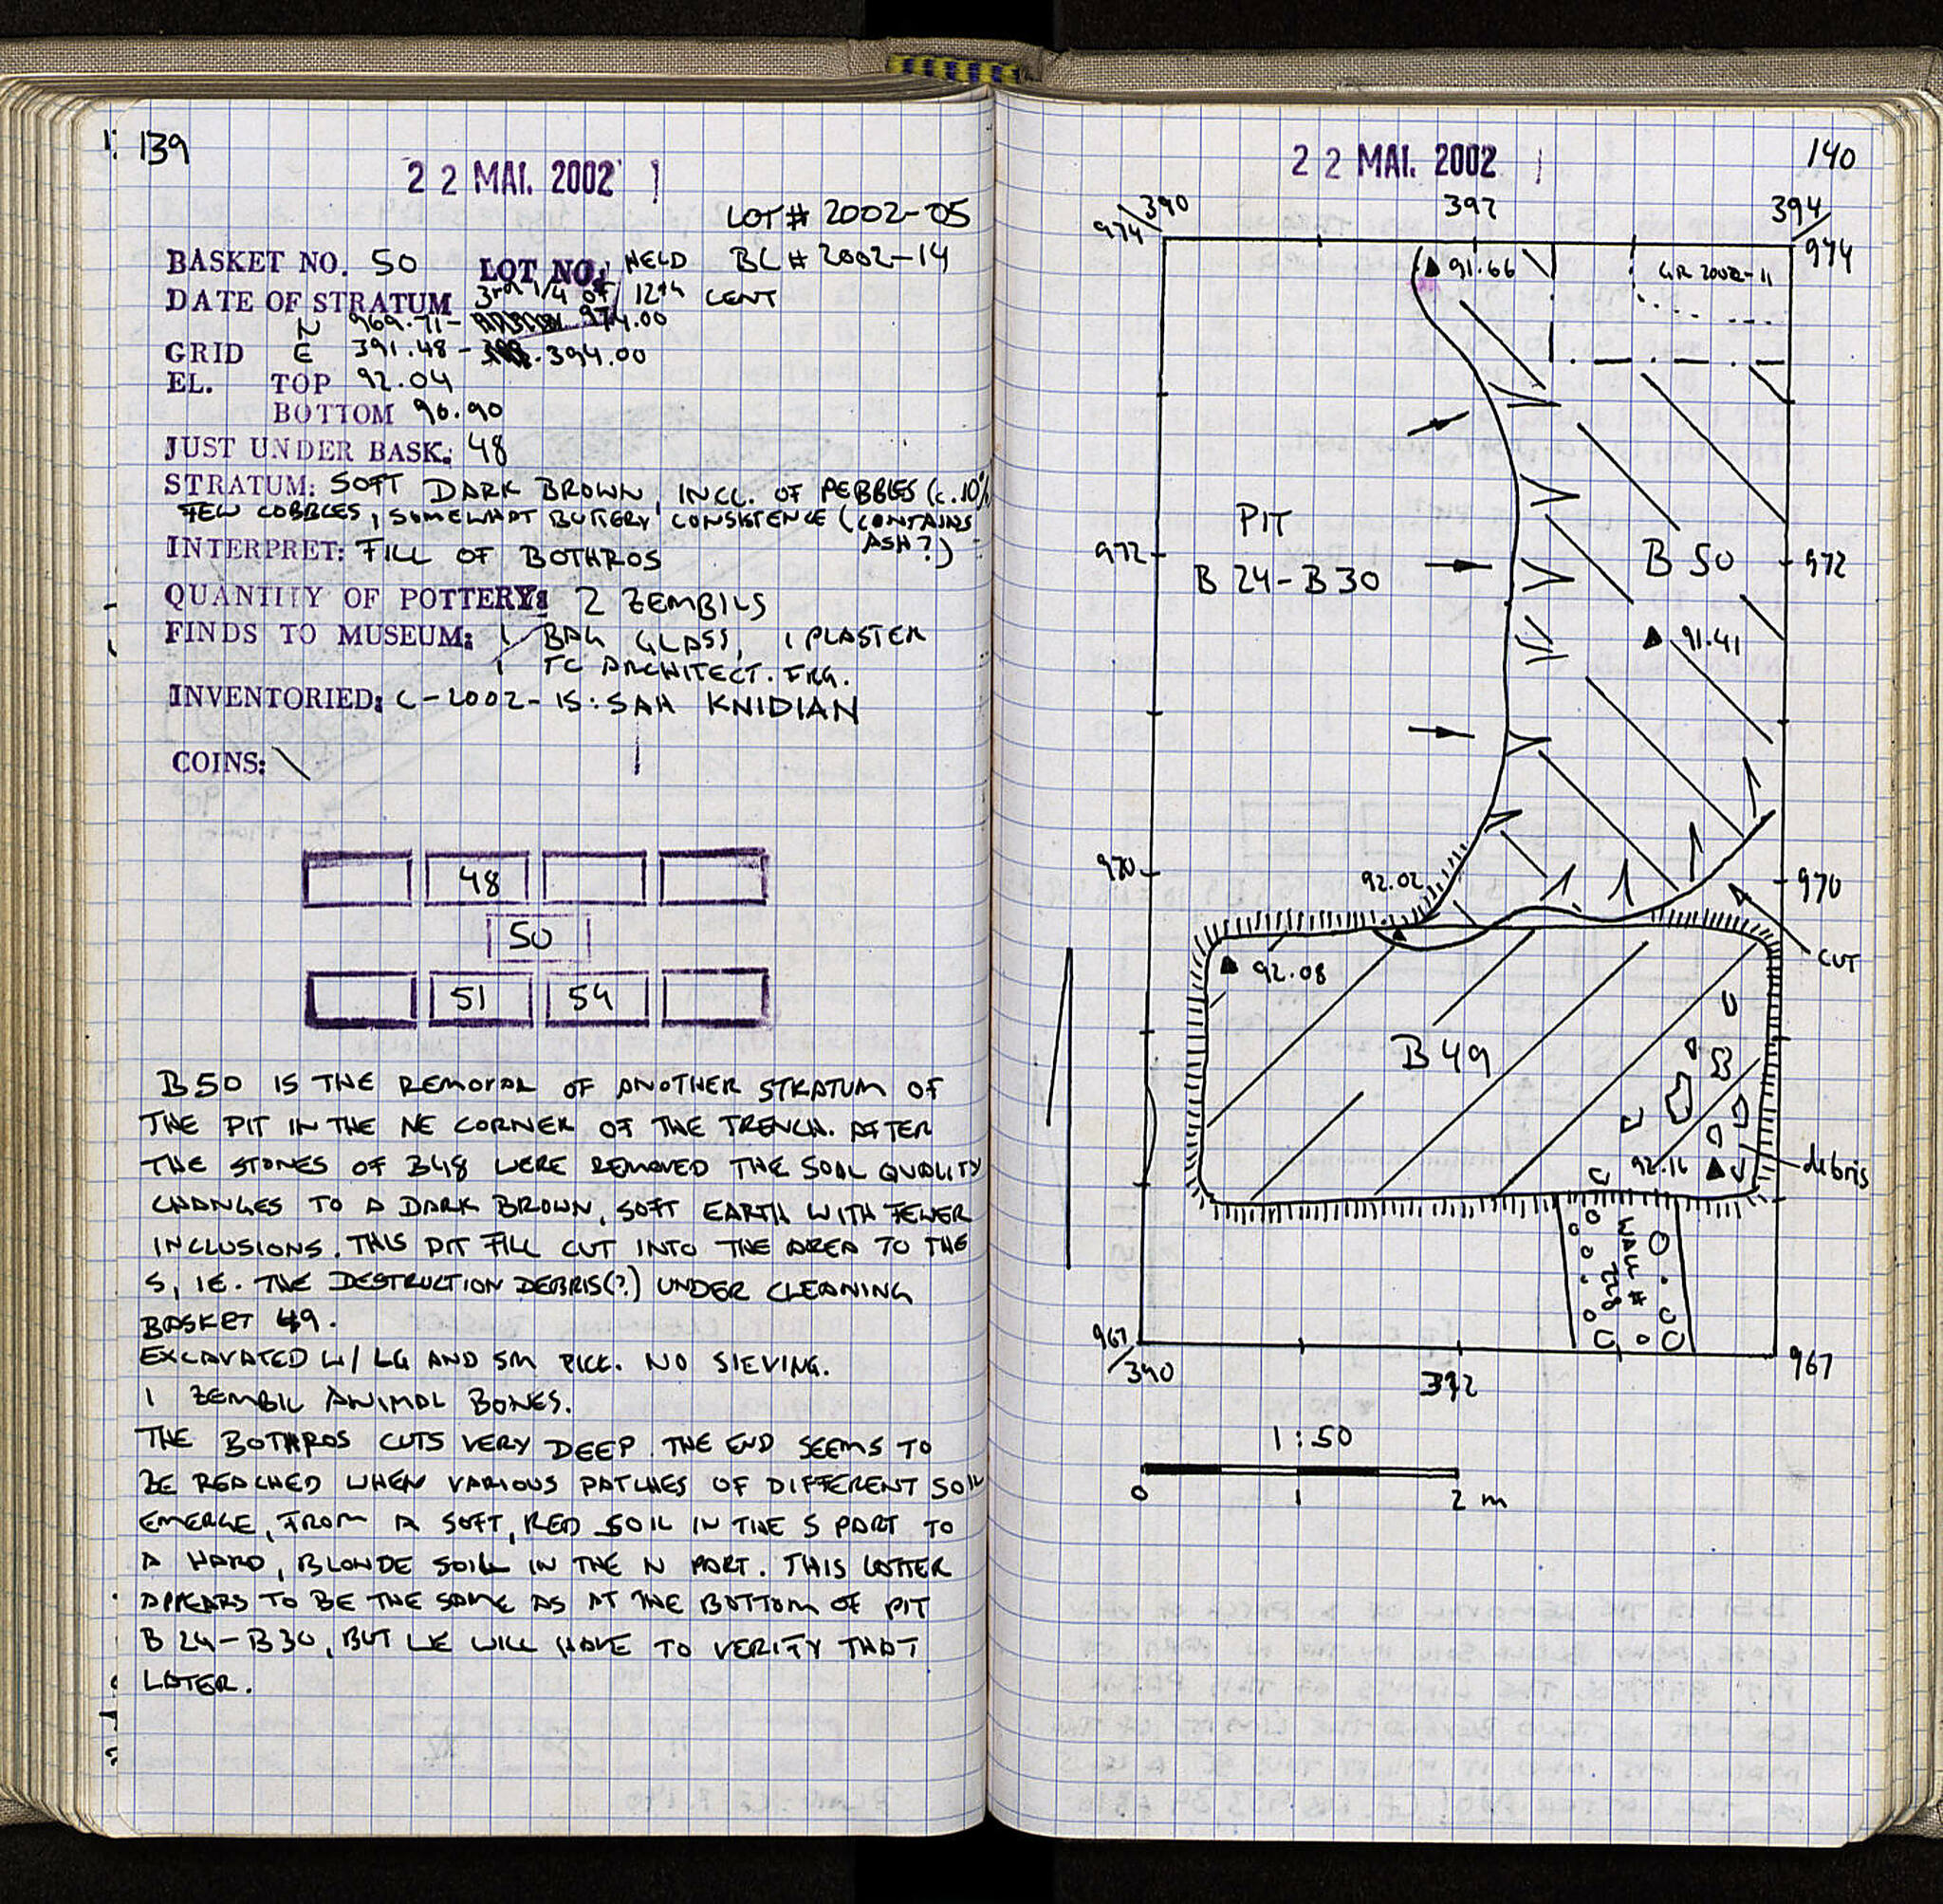 139
22 MAI. 2002
LOT # 2002-05
BASKET NO. 50 LOT NO: HELD BL # 2002-14
DATE OF STRATUM 3rd 1/4 OF 12th CENT
N 969.71- 974.00
GRID E 391.48 - 394.00
EL. TOP 92.04
BOTTOM 90.90
JUST UNDER BASK: 48
STRATUM: SOFT DARK BROWN, INCL. OF PEBBLES (c. 10%
FEW COBBLES, SOMEWHAT BUTTERY CONSISTENCE (CONTAINS
ASH?)
INTERPRET: FILL OF BOTHROS
QUANTITY OF POTTERY: 2 ZEMBILS
FINDS TO MUSEUM: 1 BAG GLASS, 1 PLASTER
1 TC ARCHITECT. FRG.
INVENTORIED: C-2002-15: SAH KNIDIAN
COINS: \
48
50
51 54
B50 IS THE REMOVAL OF ANOTHER STRATUM OF
THE PIT IN THE NE CORNER OF THE TRENCH. AFTER
THE STONES OF B48 WERE REMOVED THE SOAL QUALITY
CHANGES TO A DARK BROWN, SOFT EARTH WITH FEWER
INCLUSIONS. THIS PIT FILL CUT INTO THE AREA TO THE
S, IE. THE DESTRUCTION DEBRIS(?) UNDER CLEANING
BASKET 49.
EXCAVATED W/ LG AND SM PICK. NO SIEVING.
1 ZEMBIL ANIMAL BONES.
THE BOTHROS CUTS VERY DEEP. THE END SEEMS TO
BE REACHED WHEN VARIOUS PATCHES OF DIFFERENT SOIL
EMERGE, FROM A SOFT, RED SOIL IN THE S PART TO
A HARD, BLONDE SOIL IN THE N PART. THIS LATTER
APPEARS TO BE THE SAME AS AT THE BOTTOM OF PIT
B 24-B30, BUT WE WILL HAVE TO VERIFY THAT
LATER.
22 MAI. 2002
140
390 392 394
974 974
91.66 GR 2002-11
PIT
B 24-B30
972 B 50 972
91.41
970 92.02 970
CUT
92.08
B 49
92.16 debris
WALL #
967 967
390 392
1:50
0 1 2 m